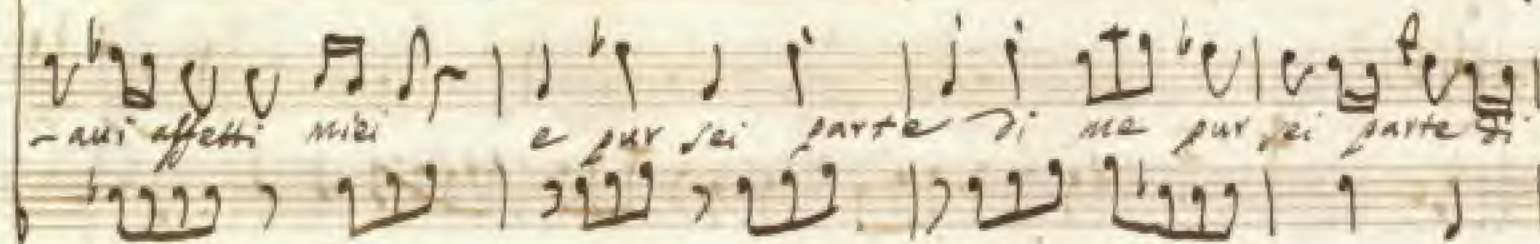 -aui affetti miei e pur sei parte di me pur sei parte di